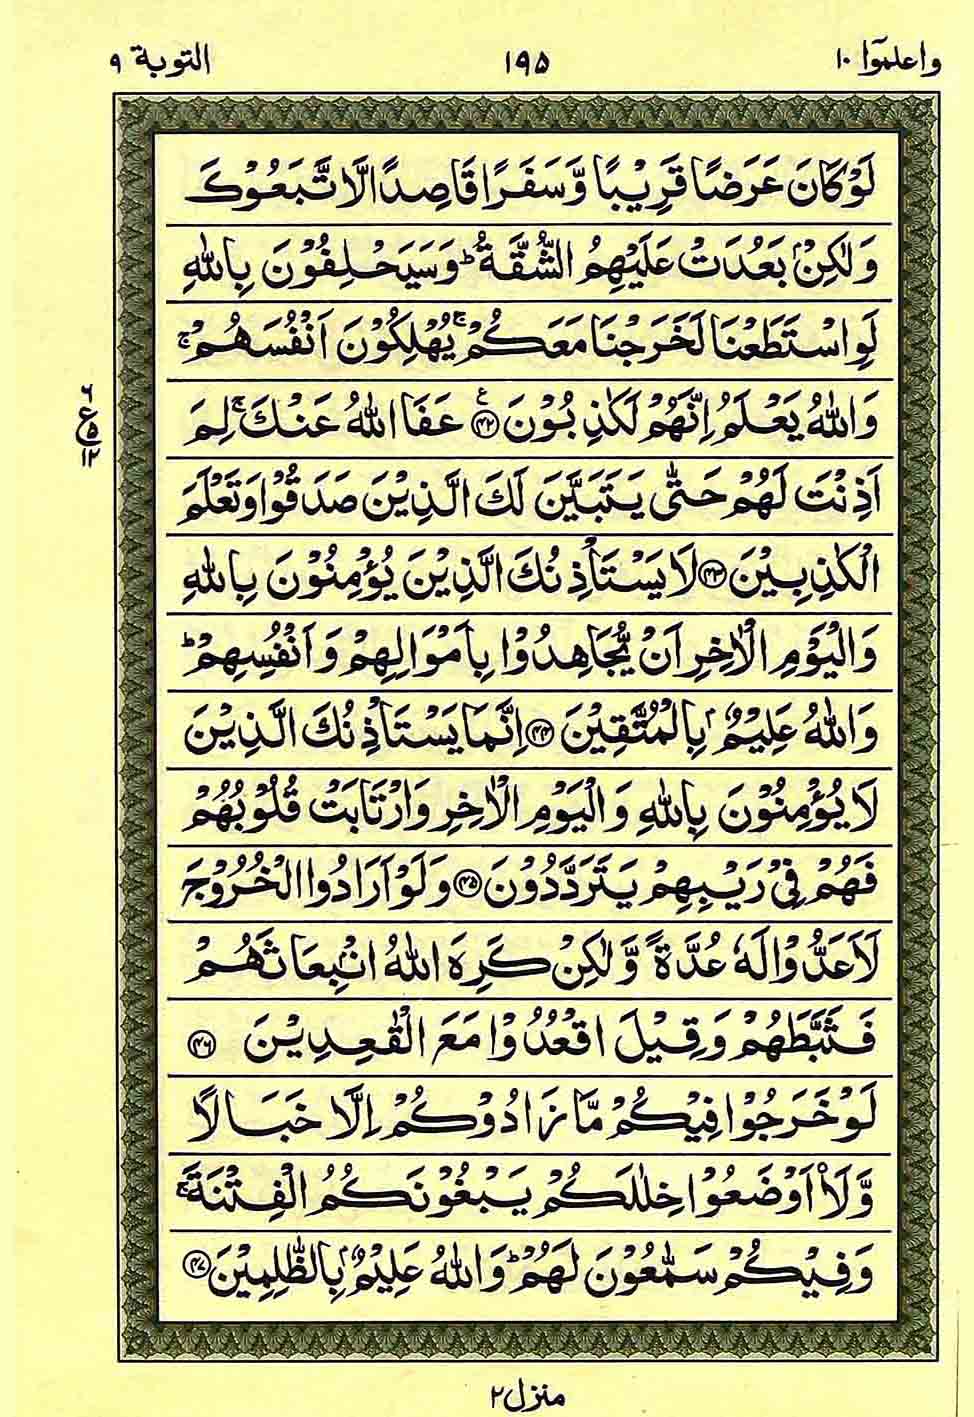 واعلموٓا ١٠ ١٩٥ التوبة ٩
لَوْ كَانَ عَرَضًا قَرِيْبًا وَّسَفَرًا قَاصِدًا لَّاتَّبَعُوْكَ
وَلٰكِنْۢ بَعُدَتْ عَلَيْهِمُ الشُّقَّةُ ؕ وَسَيَحْلِفُوْنَ بِاللّٰهِ
لَوِ اسْتَطَعْنَا لَخَرَجْنَا مَعَكُمْ ۚ يُهْلِكُوْنَ اَنْفُسَهُمْ ۚ
وَاللّٰهُ يَعْلَمُ اِنَّهُمْ لَكٰذِبُوْنَ ﴿۴۲﴾ ع عَفَا اللّٰهُ عَنْكَ ۚ لِمَ
اَذِنْتَ لَهُمْ حَتّٰى يَتَبَيَّنَ لَكَ الَّذِيْنَ صَدَقُوْا وَتَعْلَمَ
الْكٰذِبِيْنَ ﴿۴۳﴾ لَا يَسْتَاْذِنُكَ الَّذِيْنَ يُؤْمِنُوْنَ بِاللّٰهِ
وَالْيَوْمِ الْاٰخِرِ اَنْ يُّجَاهِدُوْا بِاَمْوَالِهِمْ وَاَنْفُسِهِمْ ؕ
وَاللّٰهُ عَلِيْمٌۢ بِالْمُتَّقِيْنَ ﴿۴۴﴾ اِنَّمَا يَسْتَاْذِنُكَ الَّذِيْنَ
لَا يُؤْمِنُوْنَ بِاللّٰهِ وَالْيَوْمِ الْاٰخِرِ وَارْتَابَتْ قُلُوْبُهُمْ
فَهُمْ فِيْ رَيْبِهِمْ يَتَرَدَّدُوْنَ ﴿۴۵﴾ وَلَوْ اَرَادُوا الْخُرُوْجَ
لَاَعَدُّوْا لَهٗ عُدَّةً وَّلٰكِنْ كَرِهَ اللّٰهُ انْۢبِعَاثَهُمْ
فَثَبَّطَهُمْ وَقِيْلَ اقْعُدُوْا مَعَ الْقٰعِدِيْنَ ﴿۴۶﴾
لَوْ خَرَجُوْا فِيْكُمْ مَّا زَادُوْكُمْ اِلَّا خَبَالًا
وَّلَا۟اَوْضَعُوْا خِلٰلَكُمْ يَبْغُوْنَكُمُ الْفِتْنَةَ ۚ
وَفِيْكُمْ سَمّٰعُوْنَ لَهُمْ ؕ وَاللّٰهُ عَلِيْمٌۢ بِالظّٰلِمِيْنَ ﴿۴۷﴾
۶
ع ۵
۱۲
منزل ٢